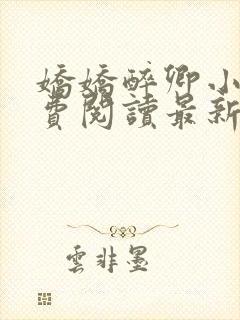 嬌嬌醉卿小
費閱讀最新
雲非墨